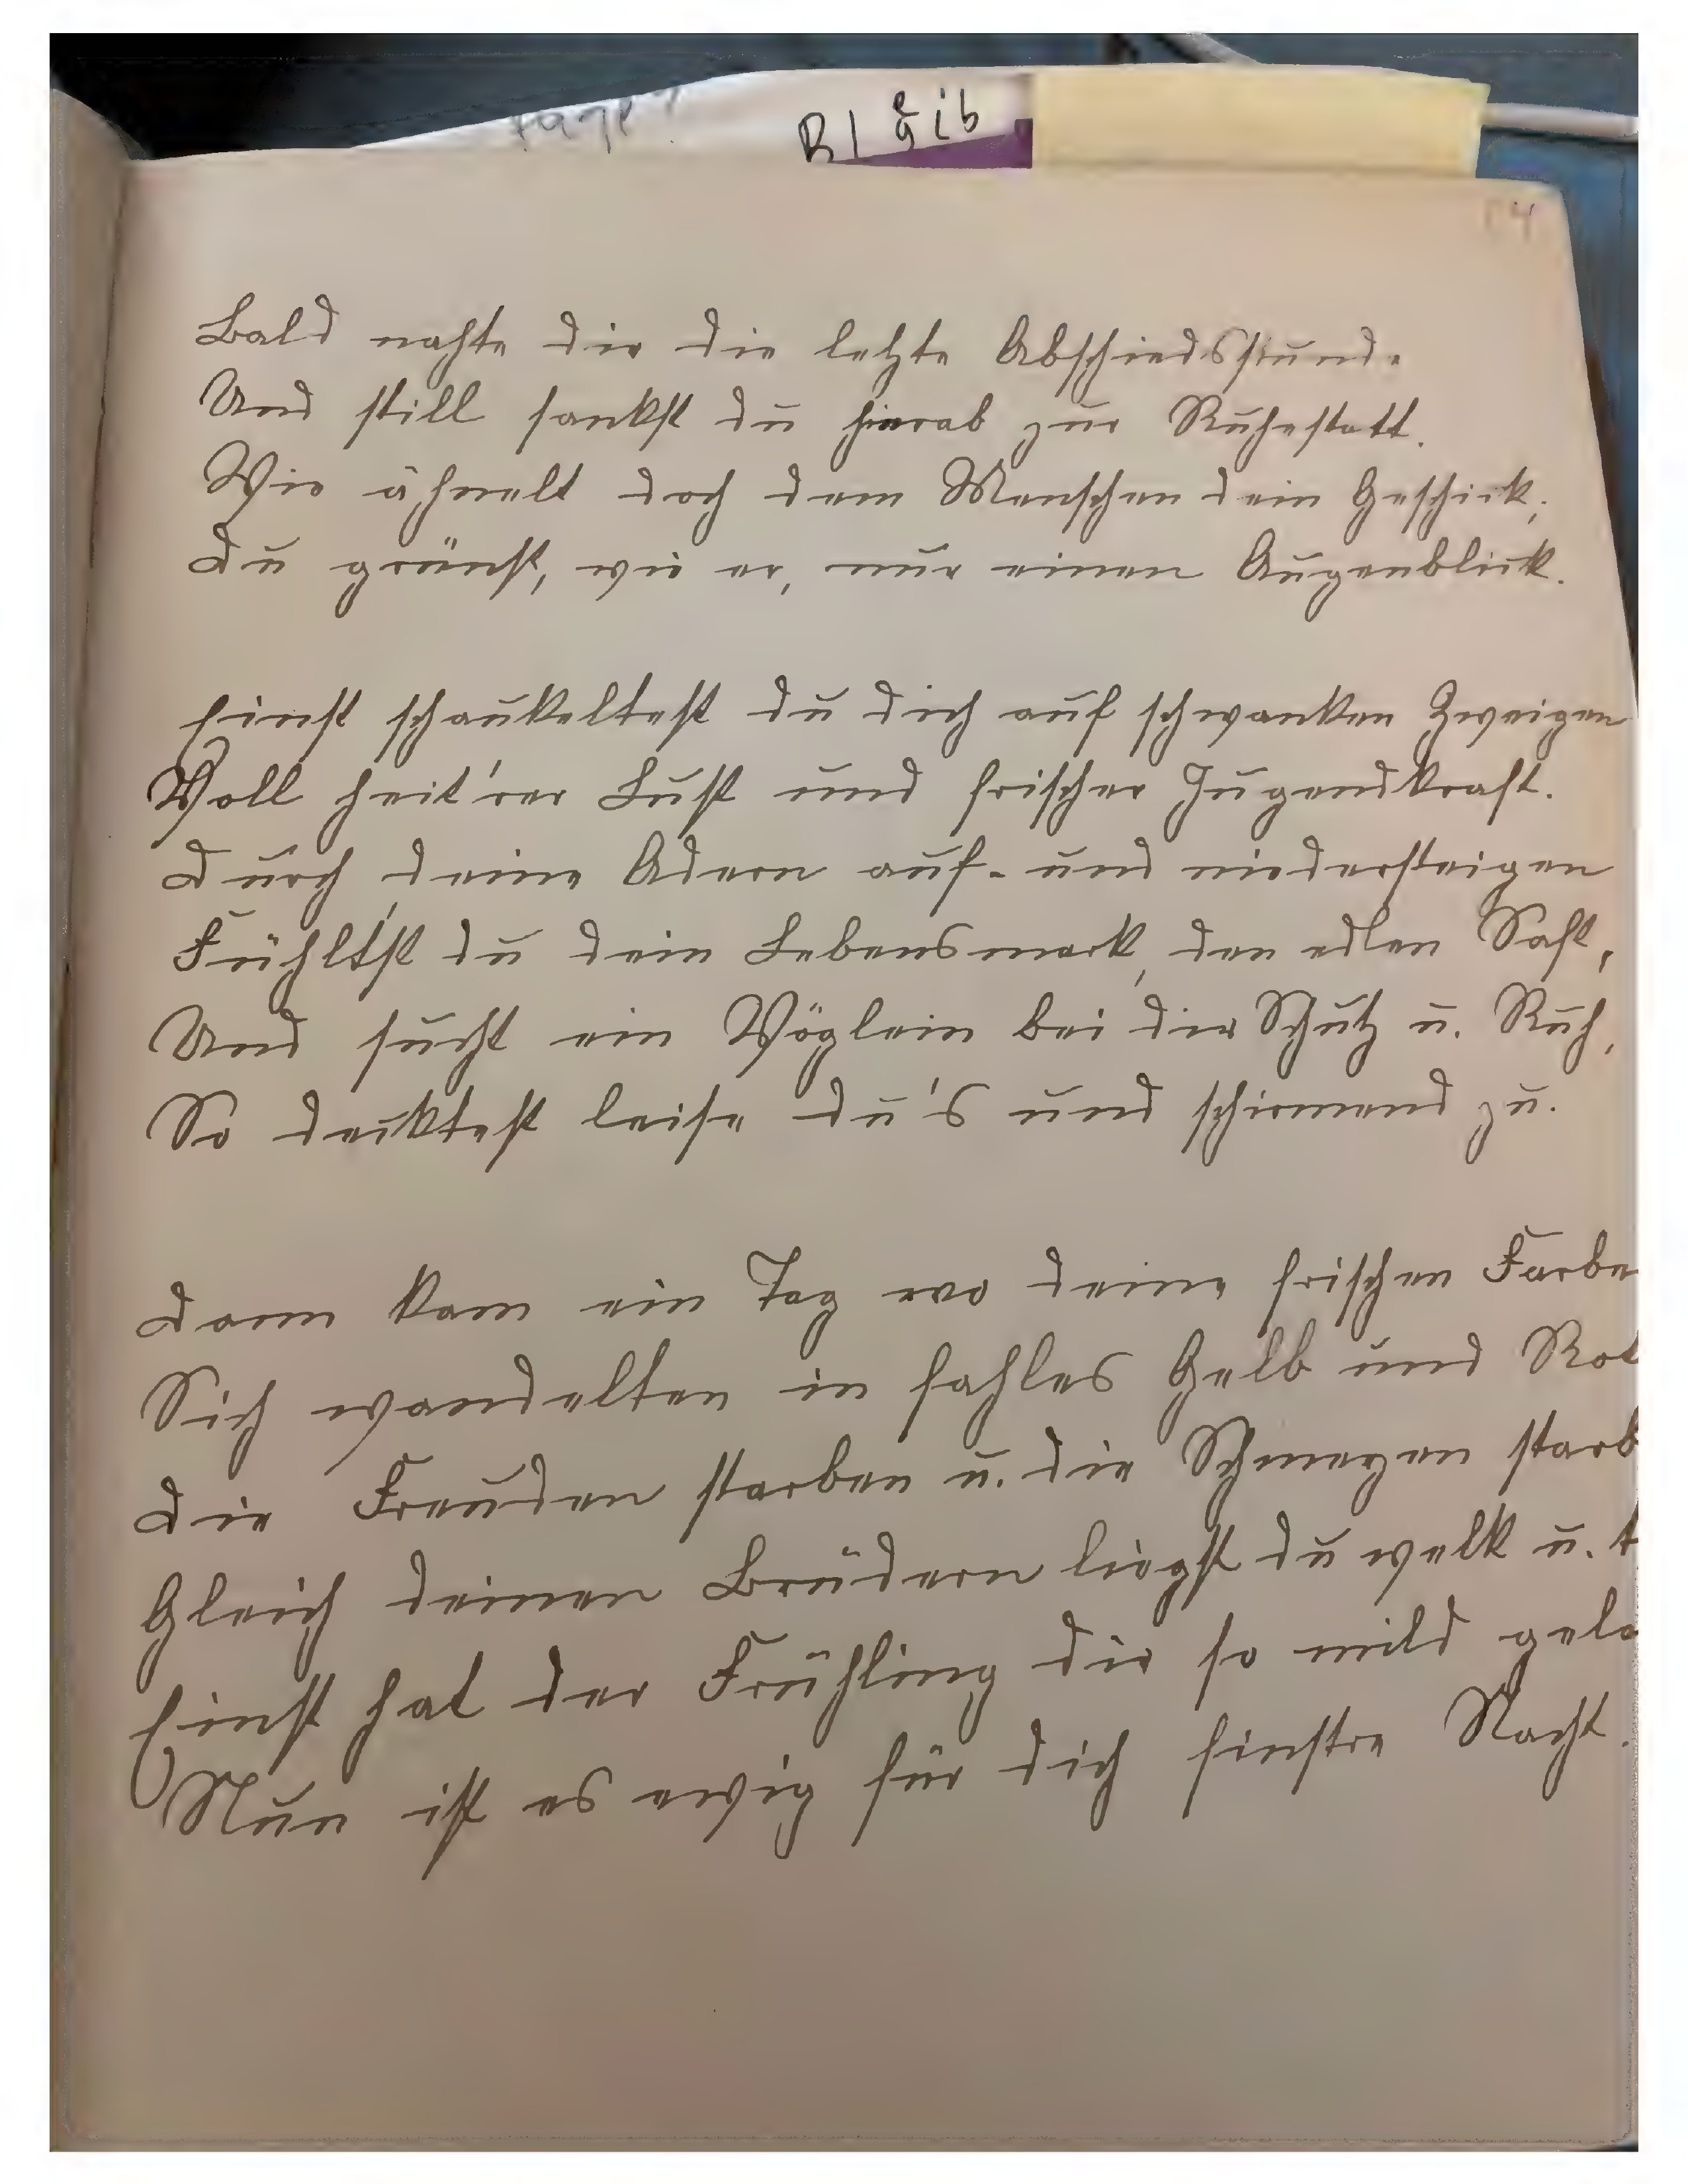 Bl Gib
54
Bald nahte dir die letzte Abschiedsstunde
Und still sankst du hierab zur Ruhestatt.
Wie ähnelt doch dem Menschen dein Geschick,
Du grünst, wie er, nur einen Augenblick.
Einst schaukeltest du dich auf schwanken Zweigen
Voll heit'rer Lust und frischer Jugendkraft.
Durch deine Adern auf- und niedersteigen
Fühlt'st du dein Lebensmark, den edlen Saft,
Und sucht ein Vöglein bei dir Schutz u. Ruh,
So decktest leise du's und schirmend zu.
Dann kam ein Tag wo deine frischen Farbe
Sich wandelten in fahles Gelb und Rot
Die Freuden starben u. die Schmerzen starb
Gleich deinen Brüdern liegst du welk u. t
Einst hat der Frühling dir so mild gela
Nun ist es ewig für dich finstre Nacht.